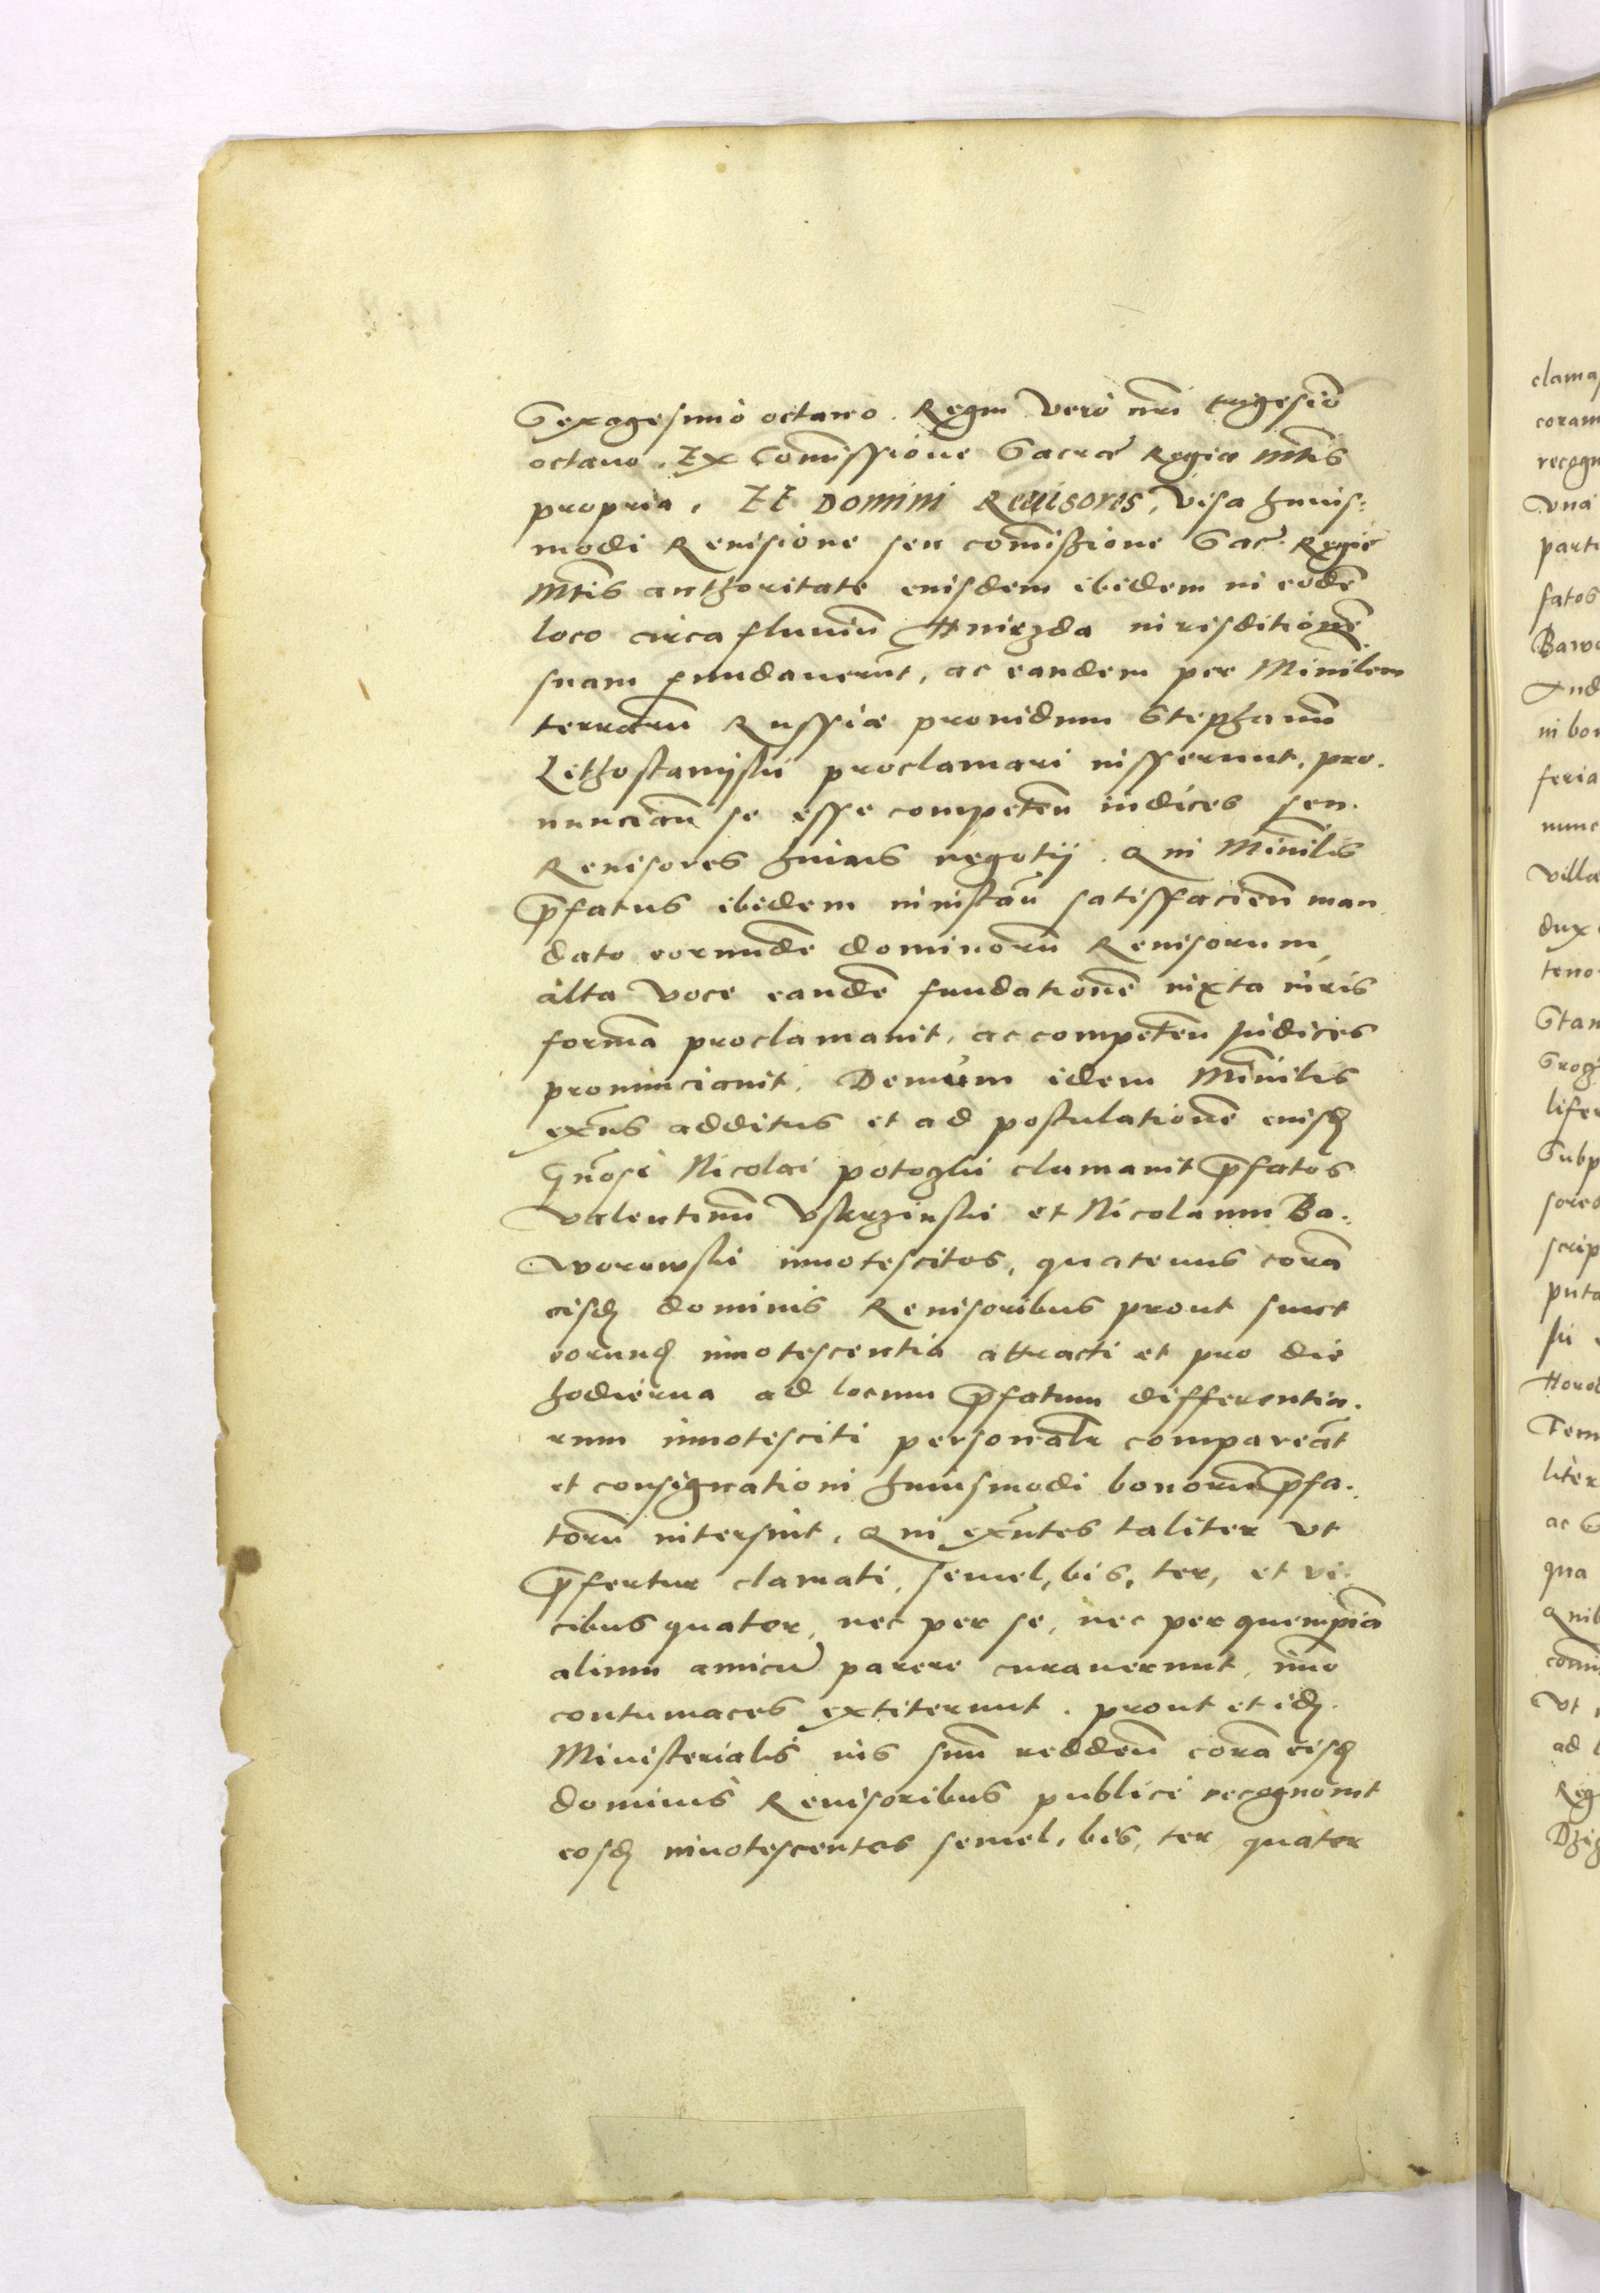 Sexagesimo octauo. Regni vero nr̃i trigesiõ
octauo. Ex Com̃issione Sacræ Regiæ Mt̃is
propria. Et Domini Reuisores, visa huius:
modi Reuisione seu com̃issione Sac̃. Regie
Mt̃is authoritate eiusdem ibidem in eodẽ
loco circa fluuiũ Hniezda iurisditionẽ
suam fundauerũt, ac eandem per Minĩlem
terrarũ Russiæ prouidum Stephanũ
Lithostanijski proclamari iusserunt, pro.
nuncian̄ se esse competen̄ iudices seu.
Reuisores huius negotij. Qui Minĩlis
p̃fatus ibidem in instan̄ satisfacien̄ man
dato eorundẽ dominorũ Reuisorum,
alta voce eandẽ fundationẽ iuxta iuris
formã proclamauit, ac competen̄ Judices
pronunciauit. Demum idem Minĩlis
ex̃ns additus et ad postulationẽ eiusd̃
Gñosi Nicolai potoczki clamauit p̃fatos
Valentinũ Vskrzinski et Nicolaum Ba.
worowski innotescitos, quatenus corã
eisd̃ dominis Reuisoribus prout sunt
eorund̃ innotescentia attracti et pro die
hodierna ad locum p̃fatum differentia.
rum innotesciti personalr̃ compareãt
et consignationi huiusmodi bonorũ p̃fa.
torũ intersint. Qui exñtes taliter vt
p̃fertur clamati, semel, bis, ter, et vi.
cibus quater, nec per se, nec per quempiã
alium amicũ parere curauerunt, im̃o
contumaces extiterunt. prout et id̃.
Ministerialis ius suũ redden̄ corã eisd̃
dominis Reuisoribus publice recognouit
eosd̃ innotescentes semel, bis, ter quater
clama
coram
recogn
vna
parti
fatos
Bawo
feria
nunc
villa
dux
teno
Stan
lifer
Subp
sores
scrip
puta
ski
Horod
Tem
liter
ac S
qua
Quib
com̃i
vt
ad
Reg